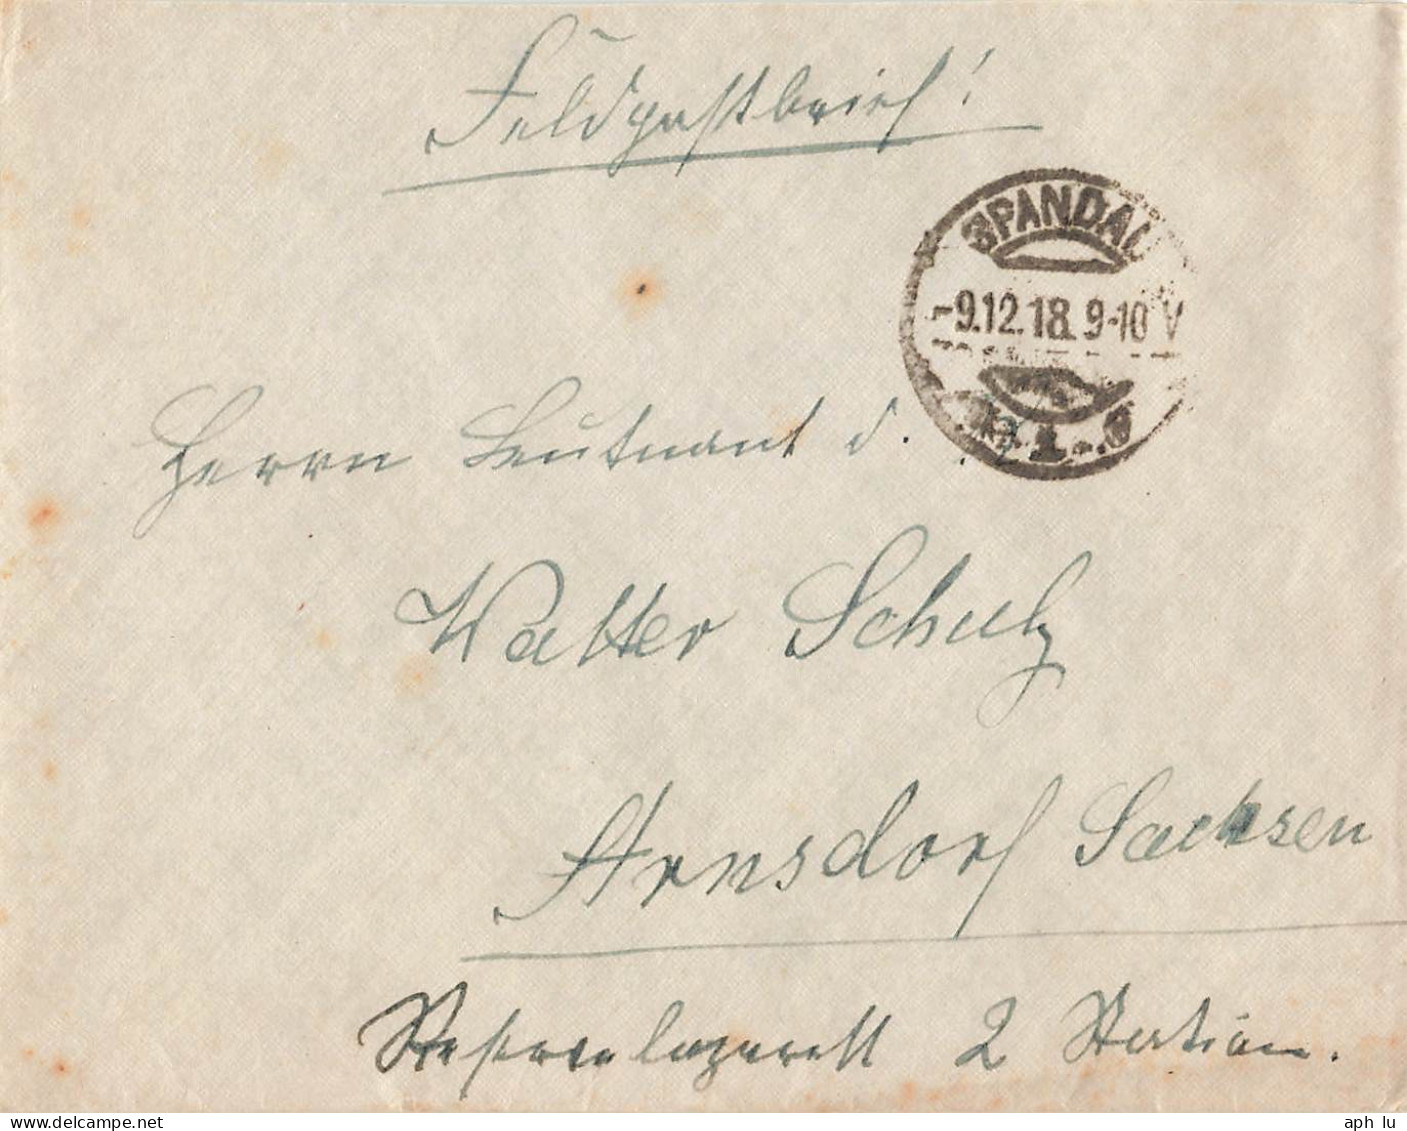 Feldpostbrief!
SPANDAU
-9.12.18. 9-10 V
1
Herrn Leutnant d. R.
Walter Schulz
Arnsdorf Sachsen
Reservelazarett 2 Station.
aph lu